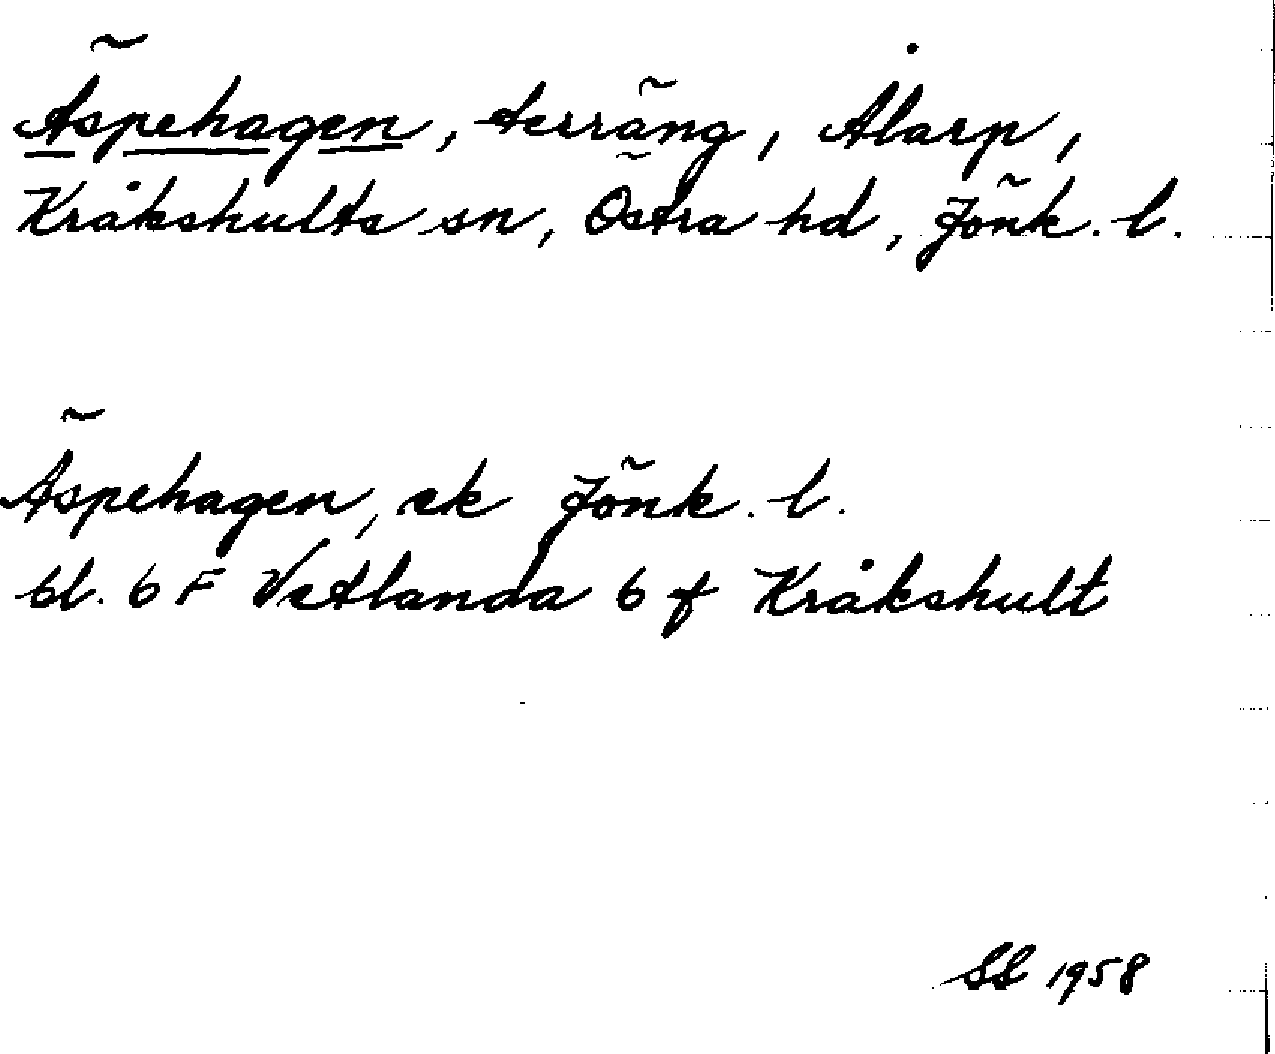 Äspehagen, terräng, Ålarp,
Kråkshults sn, Östra hd, Jönk. l.
Äspehagen, ek Jönk. l.
bl. 6 F Vetlanda 6 f Kråkshult
SS 1958